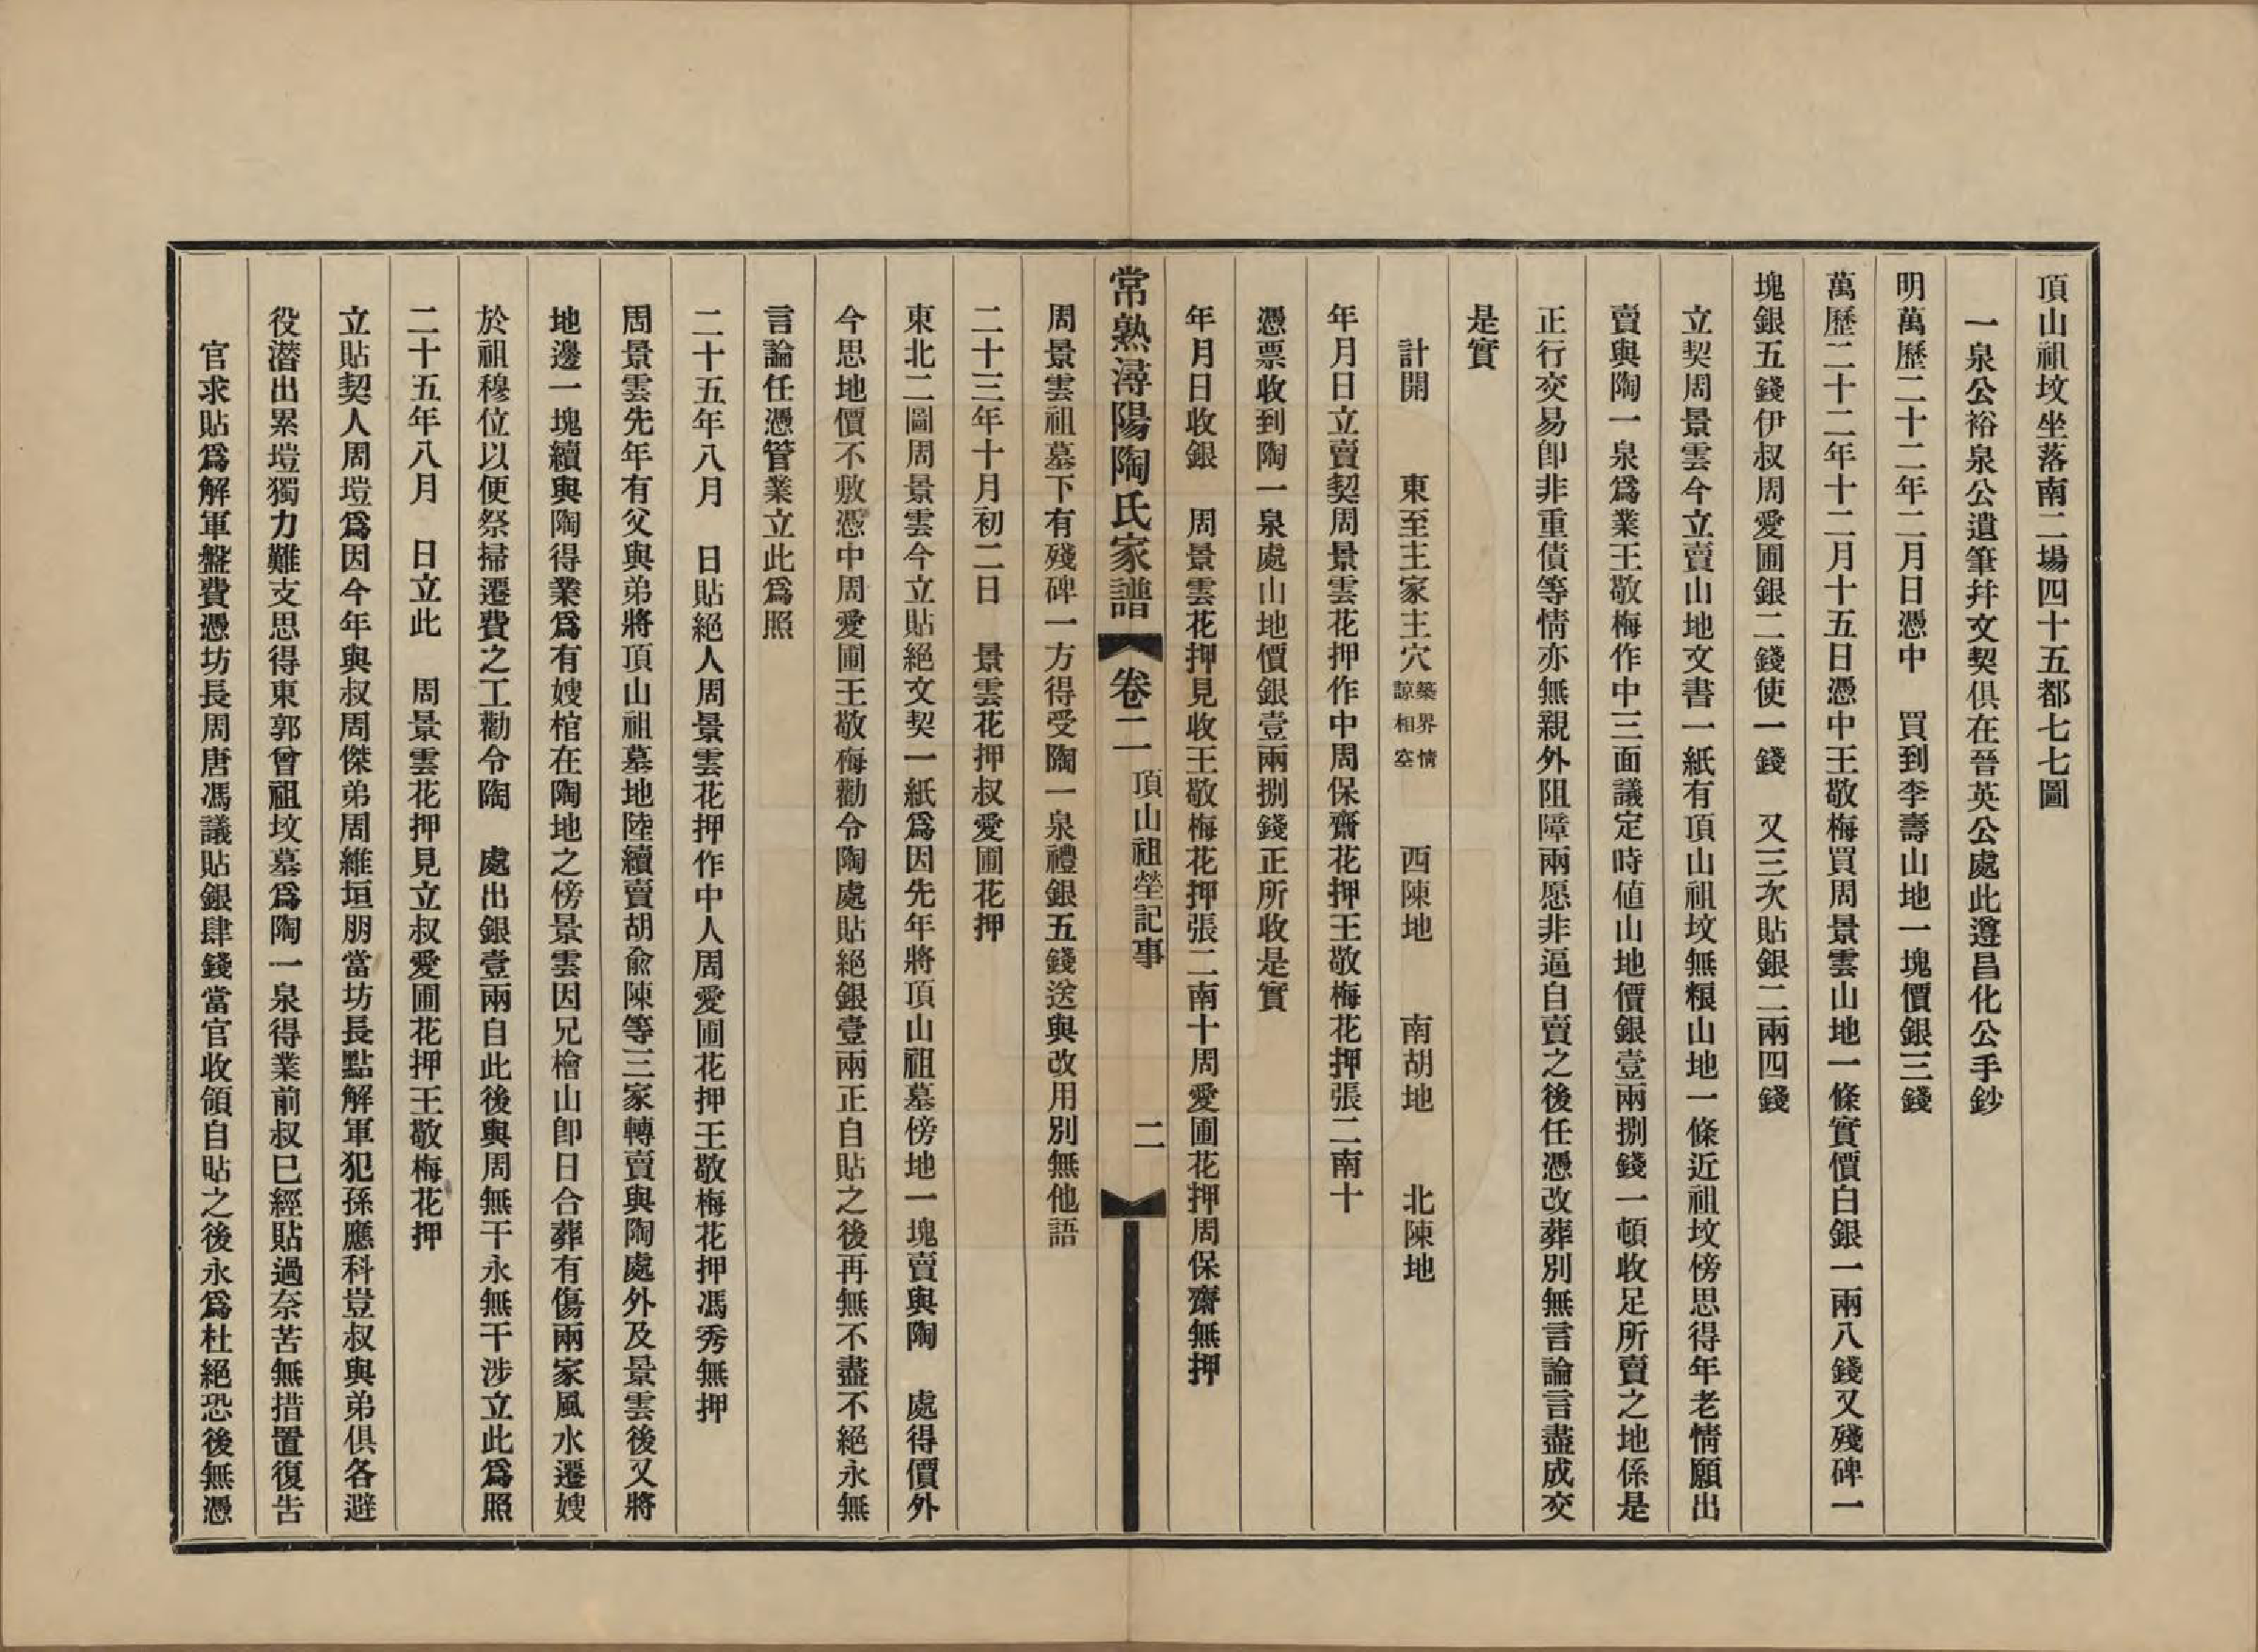 頂山祖坟坐落南二場四十五都七七圖
一泉公裕泉公遺筆幷文契俱在晉英公處此遵昌化公手鈔
明萬歷二十二年二月日憑中　買到李壽山地一塊價銀三錢
萬歷二十二年十二月十五日憑中王敬梅買周景雲山地一條實價白銀一兩八錢又殘碑一
塊銀五錢伊叔周愛圃銀二錢使一錢　又三次貼銀二兩四錢
立契周景雲今立賣山地文書一紙有頂山祖坟無粮山地一條近祖坟傍思得年老情願出
賣與陶一泉爲業王敬梅作中三面議定時値山地價銀壹兩捌錢一頓收足所賣之地係是
正行交易卽非重債等情亦無親外阻障兩愿非逼自賣之後任憑改葬別無言論言盡成交
是實
計開　東至主家主穴築界情諒相窆　西陳地　南胡地　北陳地
年月日立賣契周景雲花押作中周保齋花押王敬梅花押張二南十
憑票收到陶一泉處山地價銀壹兩捌錢正所收是實
年月日收銀　周景雲花押見收王敬梅花押張二南十周愛圃花押周保齋無押
常熟潯陽陶氏家譜　卷二　頂山祖塋記事　二
周景雲祖墓下有殘碑一方得受陶一泉禮銀五錢送與改用別無他語
二十三年十月初二日　景雲花押叔愛圃花押
東北二圖周景雲今立貼絕文契一紙爲因先年將頂山祖墓傍地一塊賣與陶　處得價外
今思地價不敷憑中周愛圃王敬梅勸令陶處貼絕銀壹兩正自貼之後再無不盡不絕永無
言論任憑管業立此爲照
二十五年八月　日貼絕人周景雲花押作中人周愛圃花押王敬梅花押馮秀無押
周景雲先年有父與弟將頂山祖墓地陸續賣胡兪陳等三家轉賣與陶處外及景雲後又將
地邊一塊續與陶得業爲有嫂棺在陶地之傍景雲因兄檜山卽日合葬有傷兩家風水遷嫂
於祖穆位以便祭掃遷費之工勸令陶　處出銀壹兩自此後與周無干永無干涉立此爲照
二十五年八月　日立此　周景雲花押見立叔愛圃花押王敬梅花押
立貼契人周塏爲因今年與叔周傑弟周維垣朋當坊長點解軍犯孫應科豈叔與弟俱各避
役潛出累塏獨力難支思得東郭曾祖坟墓爲陶一泉得業前叔已經貼過奈苦無措置復告
官求貼爲解軍盤費憑坊長周唐馮議貼銀肆錢當官收領自貼之後永爲杜絕恐後無憑